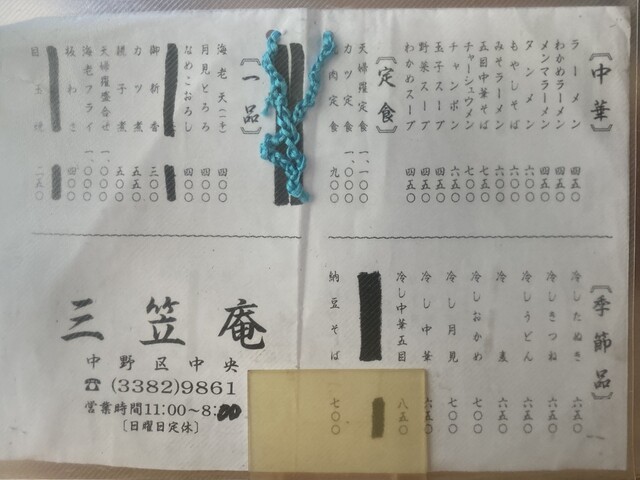 〔中華〕
ラーメン 四五〇
わかめラーメン
メンマラーメン
タンメン 六〇〇
もやしそば 六〇〇
みそラーメン 六五〇
五目中華そば 七五〇
チャーシュウメン 七〇〇
チャンポン 六五〇
玉子スープ 四五〇
野菜スープ 四五〇
わかめスープ 四五〇
〔定食〕
天婦羅定食 一、一〇〇
カツ定食 一、〇〇〇
肉定食 九〇〇
〔一品〕
海老天(一本) 四〇〇
月見とろろ 四〇〇
なめこおろし 四〇〇
御新香 三〇〇
カツ煮 五五〇
親子煮
天婦羅盛合せ 一、〇〇〇
海老フライ 一、〇〇〇
板わさ 四〇〇
目玉焼 二五〇
〔季節品〕
冷したぬき 六五〇
冷しきつね 六五〇
冷しうどん 六五〇
冷麦 六五〇
冷しおかめ 七〇〇
冷し月見 七〇〇
冷し中華 六五〇
冷し中華五目 八五〇
納豆そば 七〇〇
三笠庵
中野区中央
☎(3382)9861
営業時間11:00〜8:00
〔日曜日定休〕